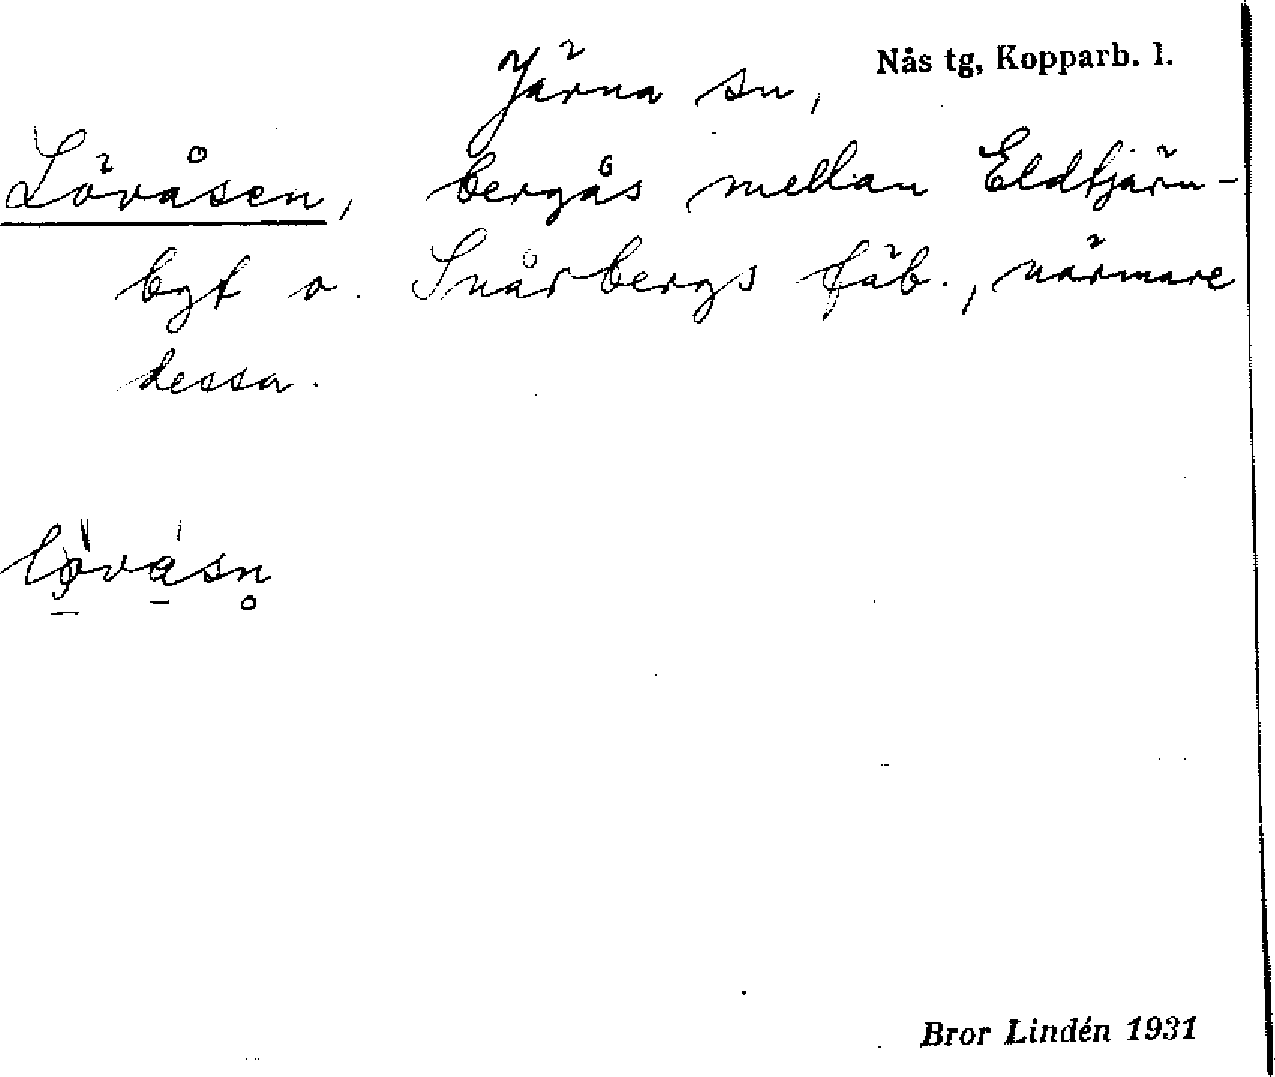 Järna sn, Nås tg, Kopparb. l.
Lövåsen, bergås mellan Eldtjärn-
bgt o. Snårbergs fäb., närmare
dessa.
Bror Lindén 1931